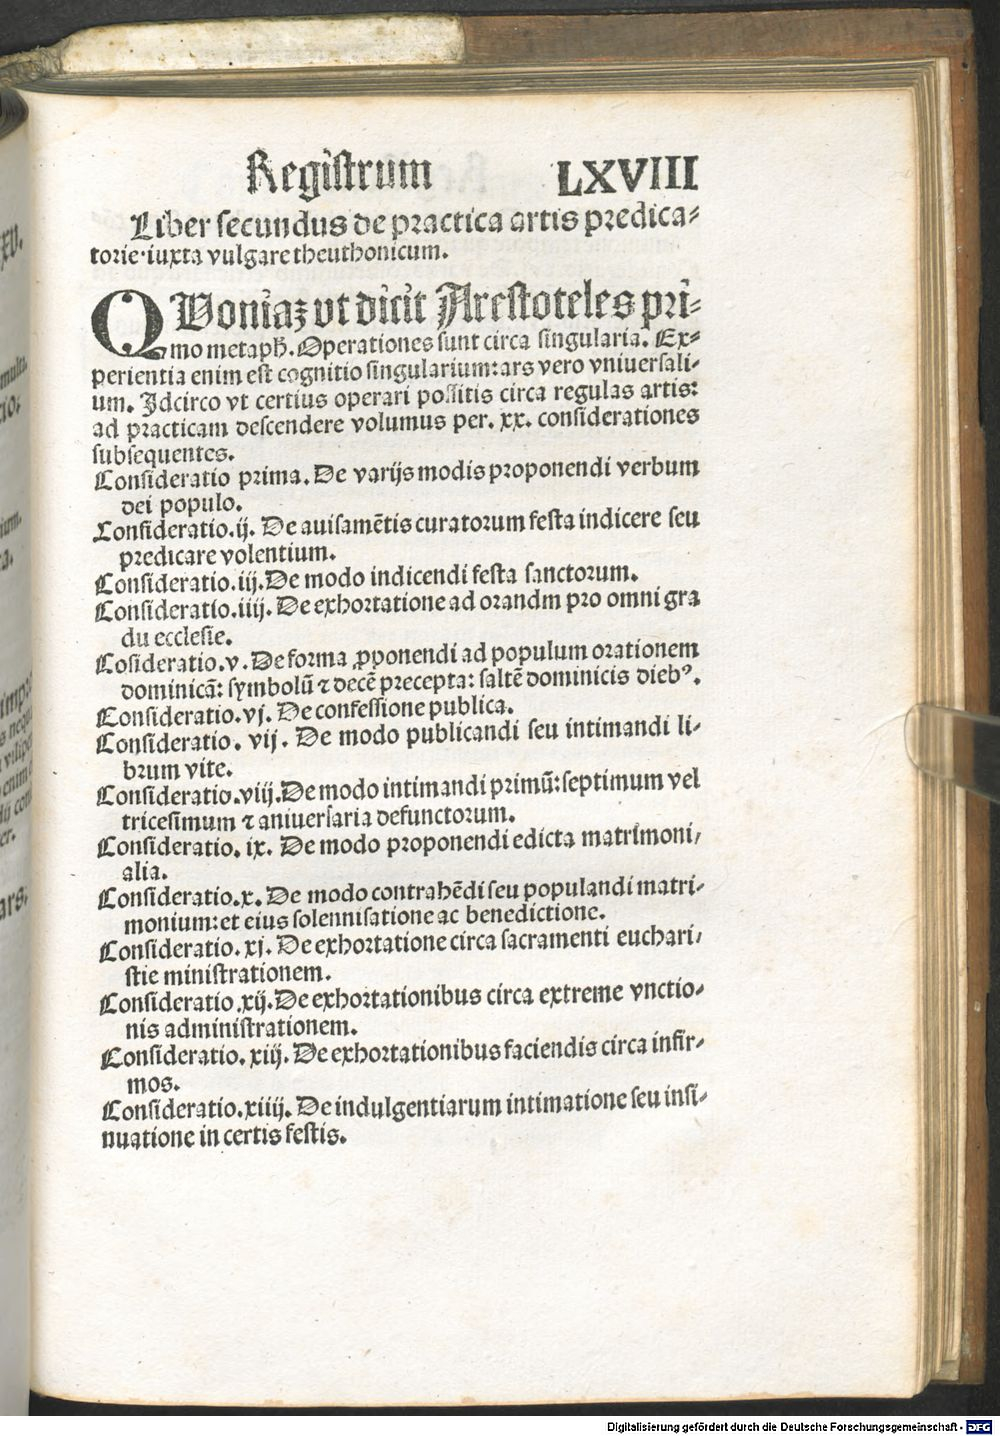 Registrum LXVIII
Liber secundus de practica artis predica⸗
torie·iuxta vulgare theuthonicum.
QUoniaꝫ vt dicit Arestoteles pri⸗
mo metaph̄. Operationes sunt circa singularia. Ex⸗
perientia enim est cognitio singularium:ars vero vniuersali⸗
um. Idcirco vt certius operari possitis circa regulas artis:
ad practicam descendere volumus per. xx. considerationes
subsequentes.
Consideratio prima. De varijs modis proponendi verbum
dei populo.
Consideratio.ij. De auisamētis curatorum festa indicere seu
predicare volentium.
Consideratio.iij.De modo indicendi festa sanctorum.
Consideratio.iiij. De exhortatione ad orandm pro omni gra
du ecclesie.
Cosideratio.v. De forma ꝓponendi ad populum orationem
dominicā: symbolū ⁊ decē precepta: saltē dominicis diebꝰ.
Consideratio.vj. De confessione publica.
Consideratio. vij. De modo publicandi seu intimandi li⸗
brum vite.
Consideratio.viij.De modo intimandi primū:septimum vel
tricesimum ⁊ aniuersaria defunctorum.
Consideratio. ix. De modo proponendi edicta matrimoni⸗
alia.
Consideratio.x. De modo contrahēdi seu populandi matri⸗
monium:et eius solennisatione ac benedictione.
Consideratio. xj. De exhortatione circa sacramenti euchari⸗
stie ministrationem.
Consideratio.xij.De exhortationibus circa extreme vnctio⸗
nis administrationem.
Consideratio. xiij. De exhortationibus faciendis circa infir⸗
mos.
Consideratio.xiiij. De indulgentiarum intimatione seu insi⸗
nuatione in certis festis.
Digitalisierung gefördert durch die Deutsche Forschungsgemeinschaft - DFG